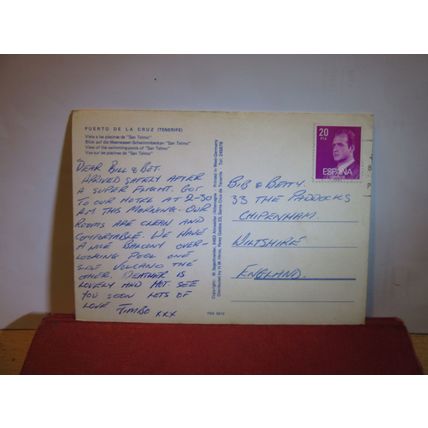 PUERTO DE LA CRUZ (TENERIFE)
Vista a las piscinas de "San Telmo"
Blick auf die Meerwasser-Schwimmbecken "San Telmo"
View of the swimming-pools of "San Telmo"
Vue sur les piscines de "San Telmo"
DEAR BILL & BET.
ARRIVED SAFELY AFTER
A SUPER FLIGHT. GOT
TO OUR HOTEL AT 2-30
AM THIS MORNING. OUR
ROOMS ARE CLEAN AND
COMFORTABLE. WE HAVE
A NICE BALCONY OVER-
LOOKING POOL ONE
SIDE VOLCANO THE
OTHER. WEATHER IS
LOVELY AND HOT SEE
YOU SOON LOTS OF
LOVE TIMBO XXX
Printed in West-Germany
20
PTA
ESPAÑA
BIB & BETTY.
33 THE PADDOCKS
CHIPENHAM
WILTSHIRE
ENGLAND.